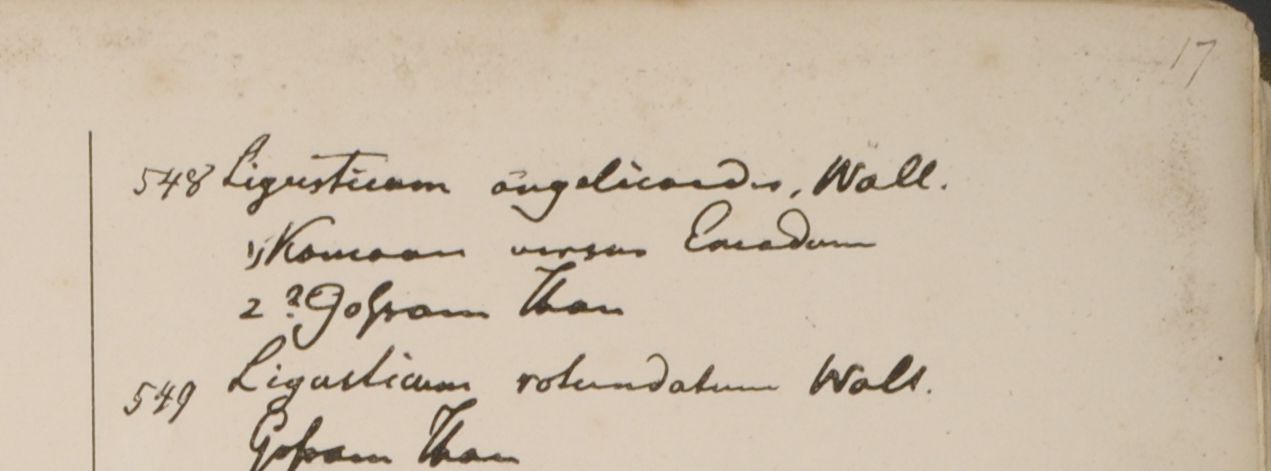 17
548 Ligusticum angelicoides, Wall.
1, Kamaon versus Emodum
2? Gossam Than
549 Ligusticum rotundatum Wall.
Gossam Than